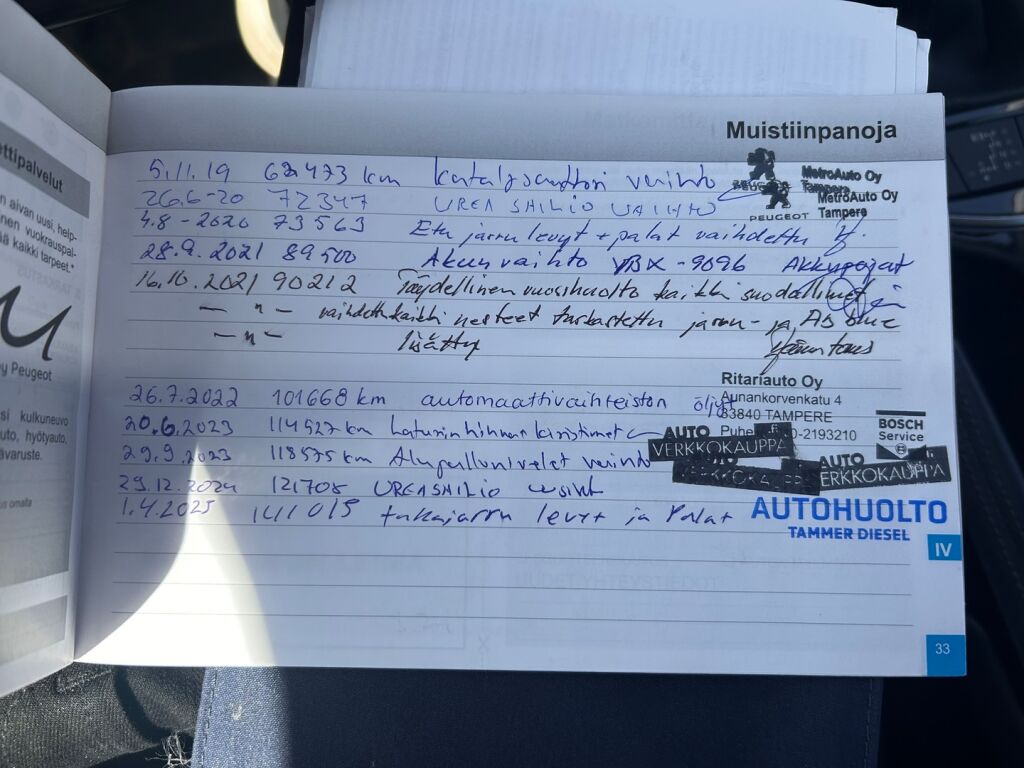 ttipalvelut
n aivan uusi, help-
nen vuokrauspal-
ä kaikki tarpeet.*
y Peugeot
si kulkuneuvo
uto, hyötyauto,
ävaruste.
us omalla
Muistiinpanoja
5.11.19 62473 km katalysaattori vaihto
PEUGEOT MetroAuto Oy
Tampere
26.6-20 72347 UREA SÄILIÖ VAIHTO
PEUGEOT MetroAuto Oy
Tampere
4.8-2020 73563 Etu jarru levyt + palat vaihdettu
28.9.2021 89500 Akun vaihto YBX-9096 Akkupojat
16.10.2021 90212 Täydellinen vuosihuolto kaikki suodattimet
— " — vaihdettu kaikki nesteet tarkastettu jarru- ja Ad blue
— " — lisätty
26.7.2022 101668 km automaattivaihteiston öljyt
Ritariauto Oy
Aunankorvenkatu 4
33840 TAMPERE
-2193210
BOSCH
Service
20.6.2023 114527 km Laturin hihnan kiristimet
AUTO
VERKKOKAUPPA
29.9.2023 118575 km Alapallonivelet vaihto
AUTO
VERKKOKAUPPA
29.12.2024 121708 UREASÄILIÖ uusint
1.4.2025 141015 takajarru levyt ja Palat
AUTOHUOLTO
TAMMER DIESEL
IV
33